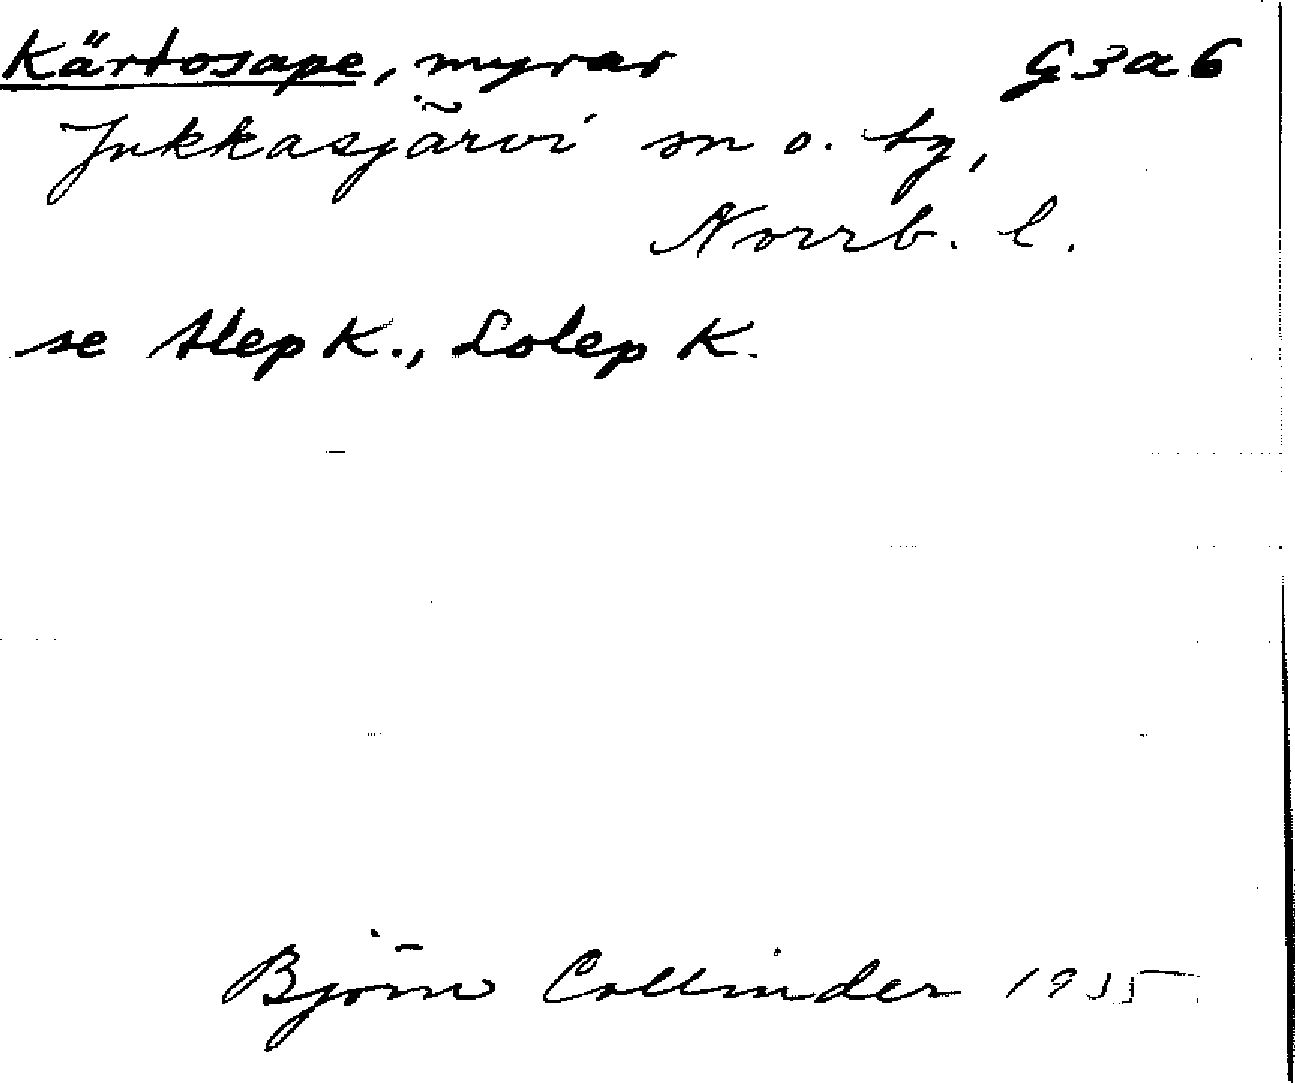 Kärtosape, myrar G3a6
Jukkasjärvi sn o. tg,
Norrb. l.
se Alep K., Lolep K.
Björn Collinder 1935